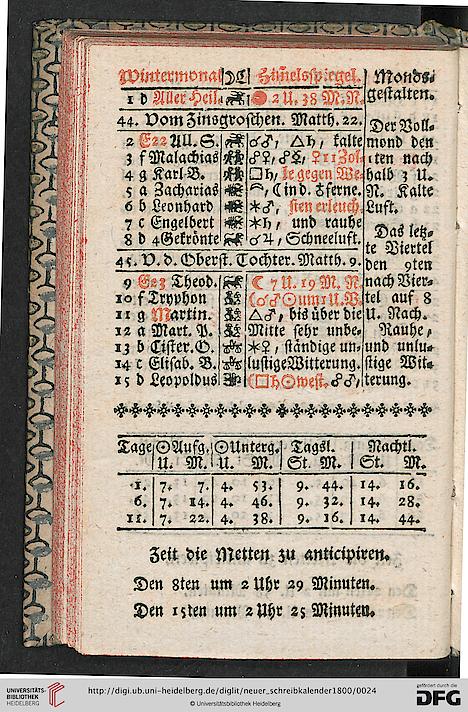 Wintermonat ☽☾ Him̄elsspiegel. Monds-
1 d Aller Heil. 2 U. 38 M. N. gestalten.
44. Vom Zinsgroschen. Matth. 22.
Der Voll-
2 E22 All. S. ☌♂, △♄, kalte mond den
3 f Malachias ☍♀, ☍☿, 1ten nach
4 g Karl B. □♄, halb 3 U.
5 a Zacharias ☾ in d. Ferne. N. Kalte
6 b Leonhard ✶♂, sten erleuch. Luft.
7 c Engelbert ✶♄, und rauhe
8 d 4Gekrönte ☌♃, Schneeluft. Das letz-
te Viertel
45. V. d. Oberst. Tochter. Matth. 9. den 9ten
9 E23 Theod. ☾ 7 U. 19 M. N. nach Vier-
10 f Tryphon um 1 U. V. tel auf 8
11 g Martin. △♂, bis über die U. Nach.
12 a Mart. P. Mitte sehr unbe- Rauhe,
13 b Cister. O. ✶♀, ständige un- und unlu-
14 c Elisab. B. lustige Witterung. stige Wit-
15 d Leopoldus □♄☉ west. ☍♂, terung.
Tage ☉Aufg. ☉Unterg. Tagsl. Nachtl.
U. M. U. M. St. M. St. M.
1. 7. 7. 4. 53. 9. 44. 14. 16.
6. 7. 14. 4. 46. 9. 32. 14. 28.
11. 7. 22. 4. 38. 9. 16. 14. 44.
Zeit die Metten zu anticipiren.
Den 8ten um 2 Uhr 29 Minuten.
Den 15ten um 2 Uhr 25 Minuten.
UNIVERSITÄTS-
BIBLIOTHEK
HEIDELBERG
http://digi.ub.uni-heidelberg.de/diglit/neuer_schreibkalender1800/0024
© Universitätsbibliothek Heidelberg
gefördert durch die
DFG